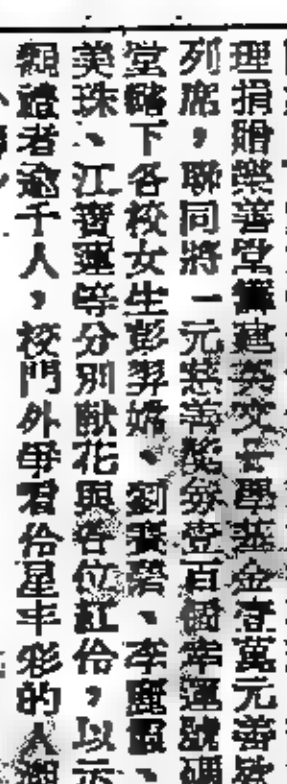 理捐贈樂善堂籌建英文中學基金壹萬元善款
列席，聯同將一元慈善獎券壹百個幸運號碼
堂轄下各校女生彭羿嫦、劉寶碧、李麗霞、
美珠、江寶蓮等分別獻花與各位紅伶，以示
觀禮者逾千人，校門外爭看伶星丰彩的人潮